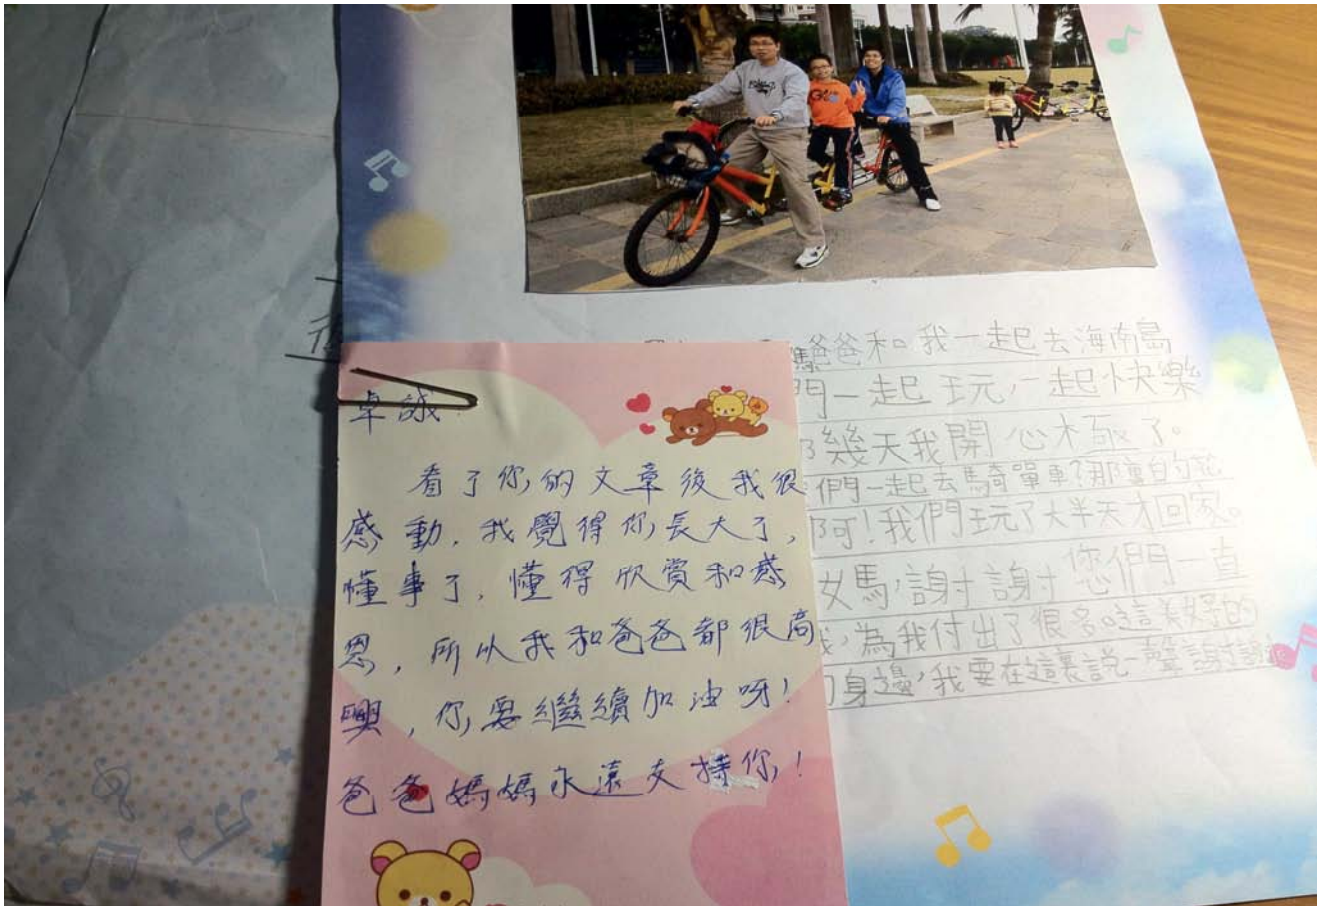 爸爸和我一起去海南島
門一起玩,一起快樂
幾天我開心極了。
們一起去騎單車?那裏的
阿!我們玩了大半天才回家。
媽,謝謝您們一直
我,為我付出了很多
身邊,我要在這裏說一聲謝謝
卓誠
看了你的文章後我很
感動,我覺得你長大了,
懂事了,懂得欣賞和感
恩,所以我和爸爸都很高
興,你要繼續加油呀!
爸爸媽媽永遠支持你!